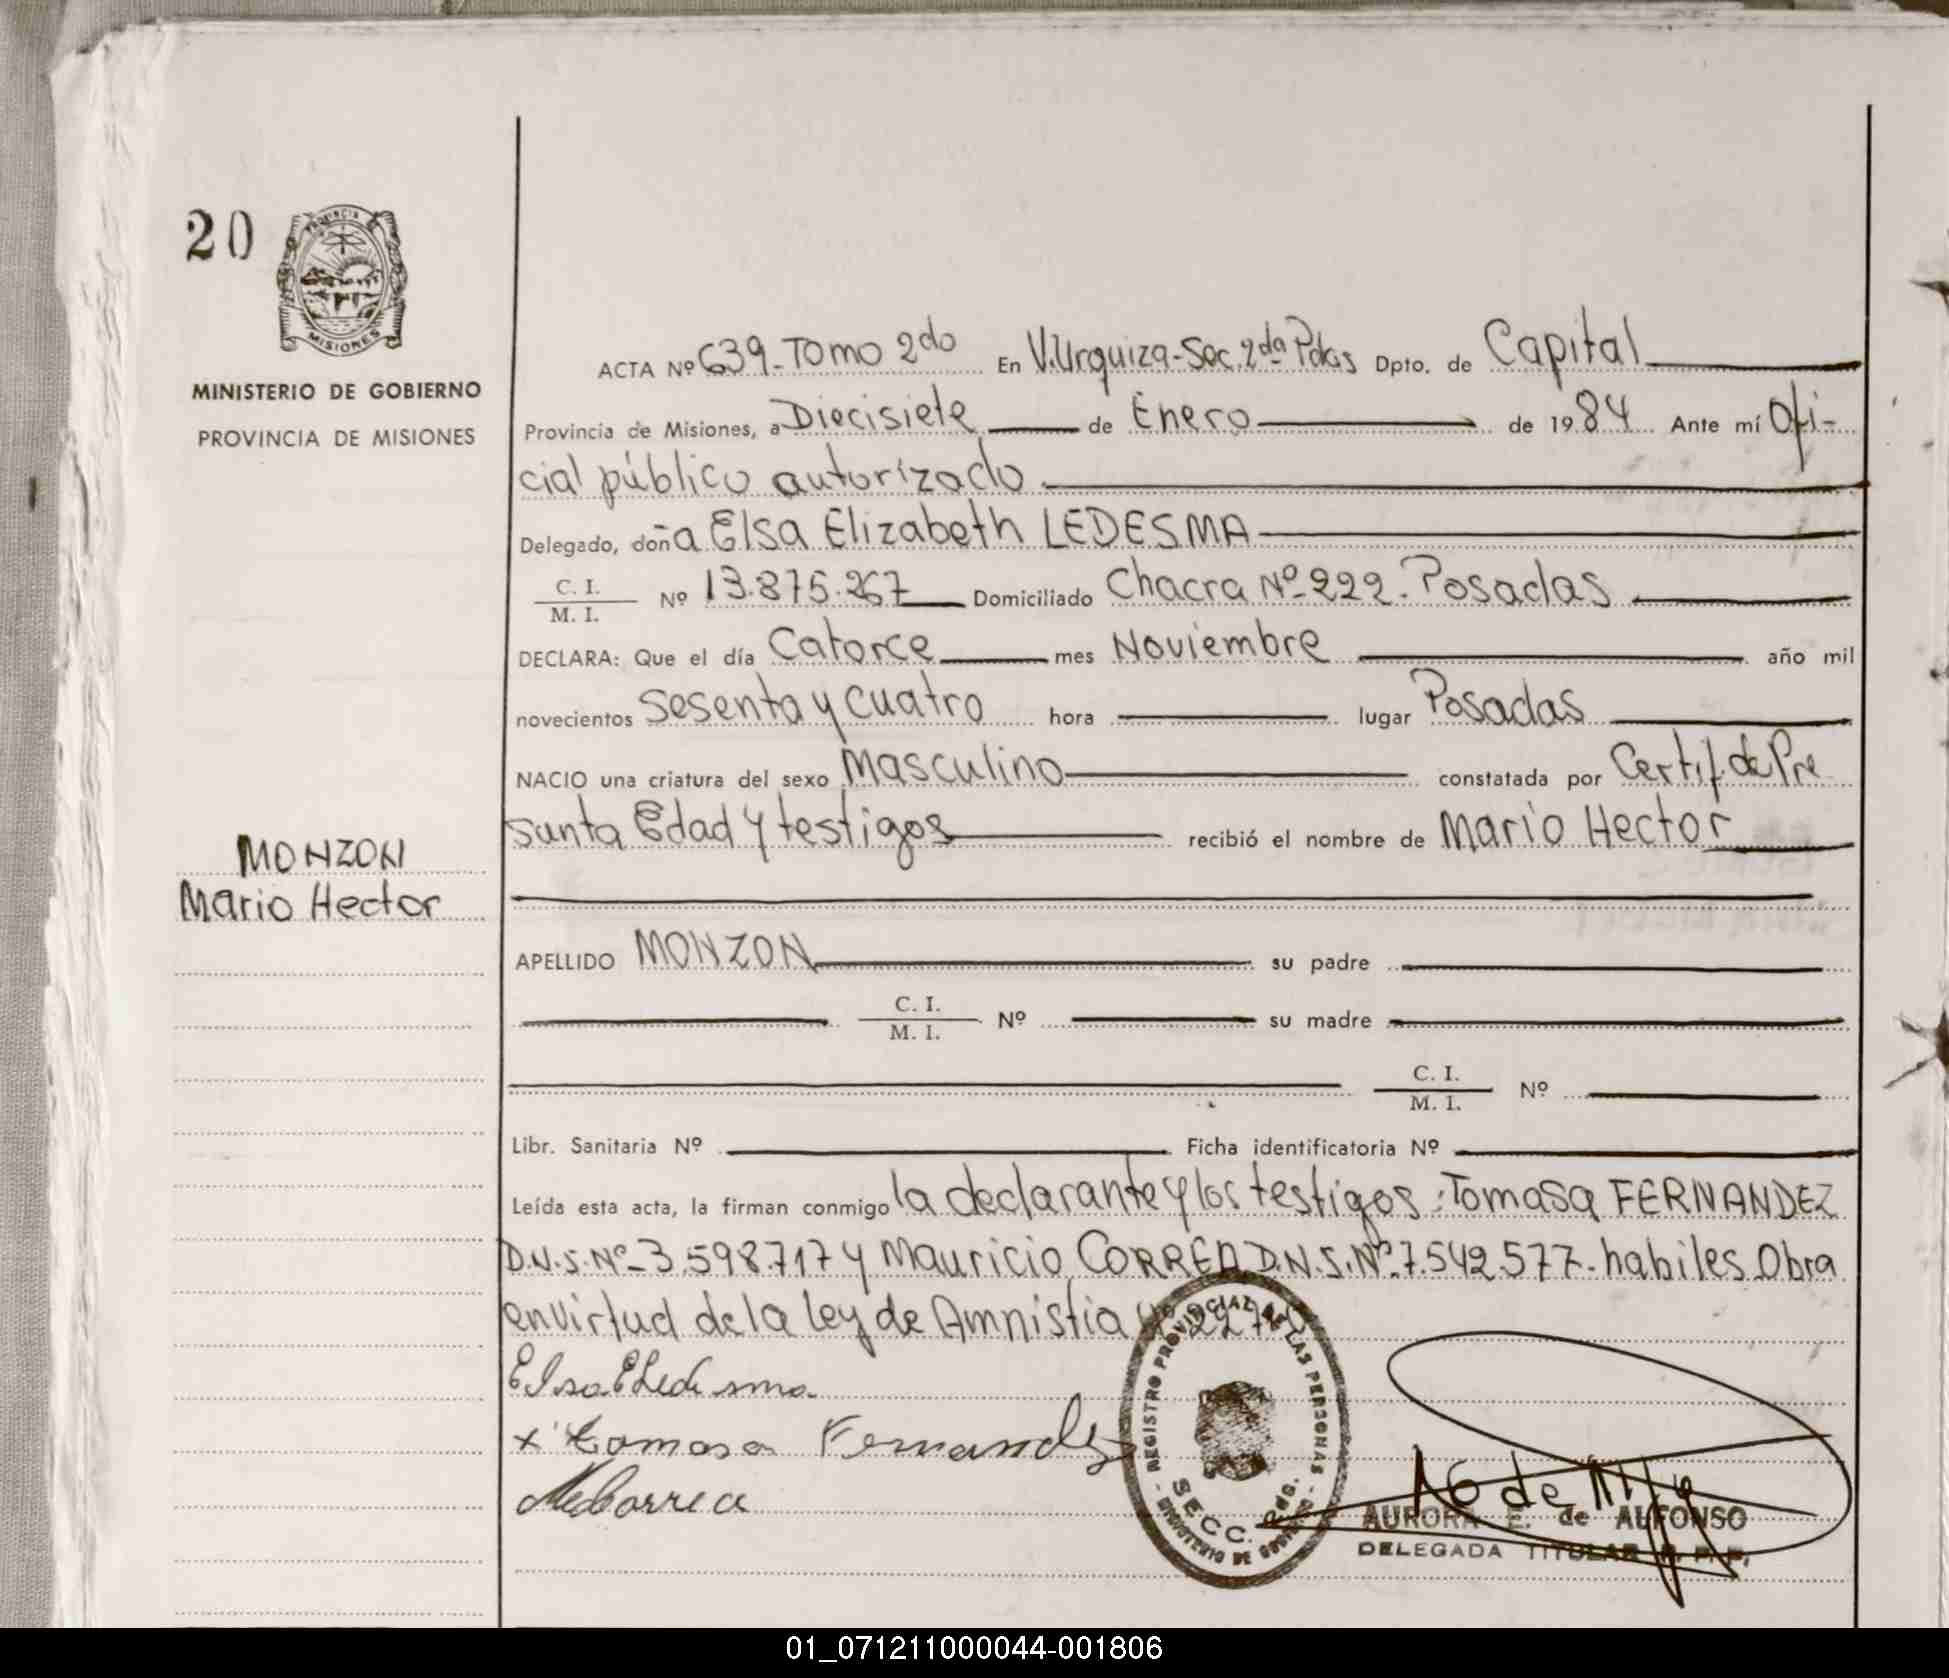 20
PROVINCIA
MISIONES
MINISTERIO DE GOBIERNO
PROVINCIA DE MISIONES
ACTA Nº 639-Tomo 2do En V.Urquiza-Sec. 2da Pdas Dpto. de Capital
Provincia de Misiones, a Diecisiete de Enero de 1984 Ante mí Ofi-
cial público autorizado
Delegado, doña Elsa Elizabeth LEDESMA
C. I.
M. I. Nº 13.875.267 Domiciliado Chacra Nº 222. Posadas
DECLARA: Que el día Catorce mes Noviembre año mil
novecientos sesenta y cuatro hora lugar Posadas
NACIO una criatura del sexo Masculino constatada por Certif. de Pre
sunta Edad y testigos recibió el nombre de Mario Hector
MONZON
Mario Hector
APELLIDO MONZON su padre
C. I.
M. I. Nº su madre
C. I.
M. I. Nº
Libr. Sanitaria Nº Ficha identificatoria Nº
Leída esta acta, la firman conmigo la declarante y los testigos: Tomasa FERNANDEZ
D.N.S. Nº 3.598.717 y Mauricio CORREA D.N.S. Nº 7.542.577. habiles. Obra
en virtud de la ley de Amnistia
Elsa E Ledesma
x Tomasa Fernandez
M Correa
REGISTRO PROVINCIAL DE LAS PERSONAS
SECC. 2da. Pds.
MINISTERIO DE GOBIERNO
AURORA E. de ALFONSO
DELEGADA TITULAR R. P. P.
01_071211000044-001806